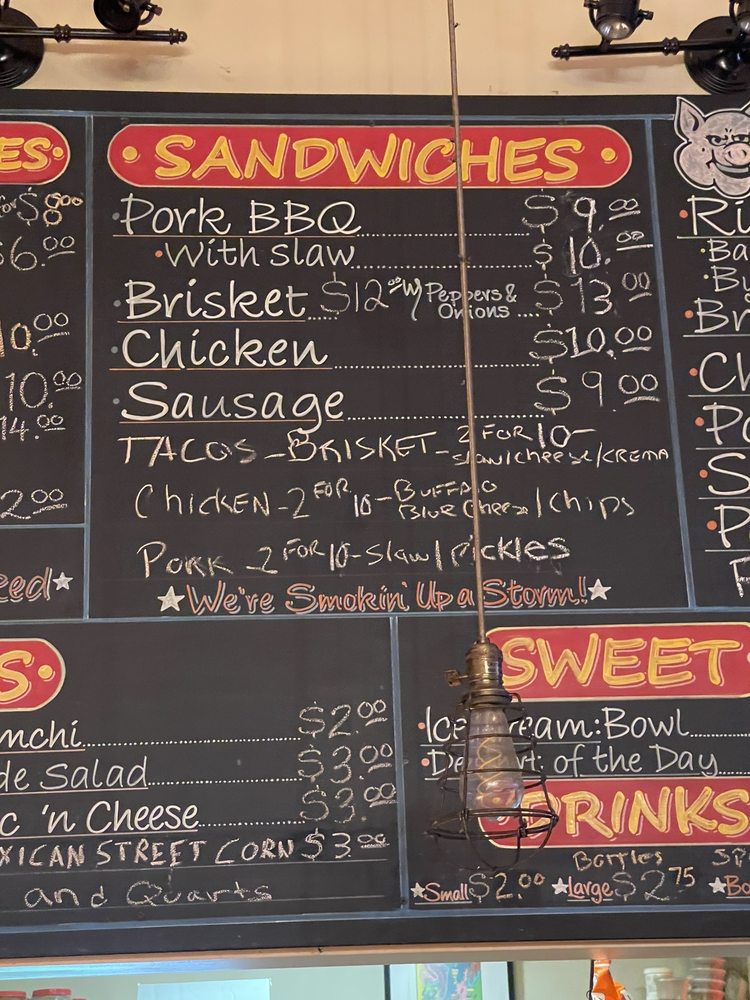 SANDWICHES
Pork BBQ $9.00
With slaw $10.00
Brisket $12.00 W/ Peppers & Onions $13.00
Chicken $10.00
Sausage $9.00
TACOS - BRISKET - 2 FOR 10 - slaw/cheese/KREMA
CHICKEN - 2 FOR 10 - BUFFALO Blue Cheese/Chips
PORK - 2 FOR 10 - Slaw/Pickles
We're Smokin' Up a Storm!
ES
$8.00
$6.00
10.00
10.00
14.00
2.00
eed
Ri
Ba
Bu
Br
Ch
Po
S
P
F
S
mchi $2.00
de Salad $3.00
c 'n Cheese $3.00
XICAN STREET CORN $3.00
and Quarts
SWEET
Ice Cream: Bowl
of the Day
DRINKS
Bottles SP
Small $2.00 Large $2.75 Bo